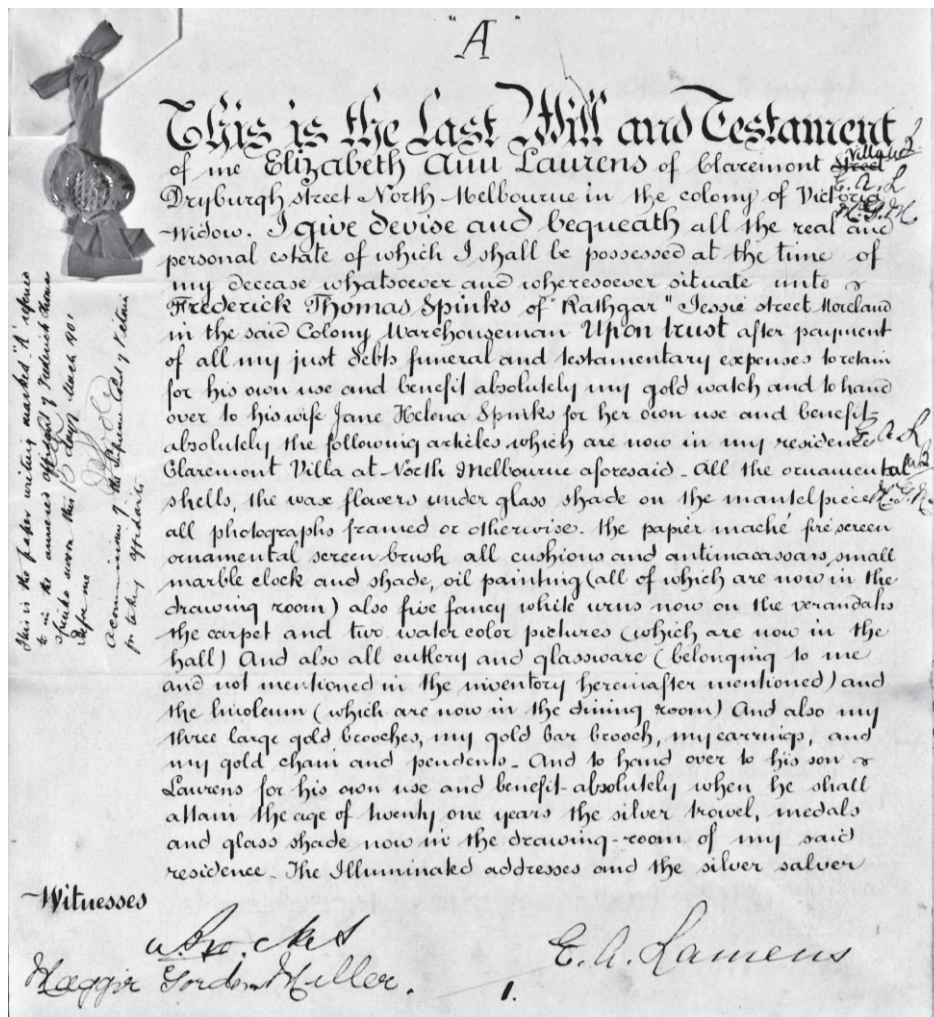 "A"
This is the last Will and Testament
of me Elizabeth Ann Laurens of Claremont Street Villa
E. A. L
Dryburgh street North Melbourne in the colony of Victoria
M. G. M
Widow. I give devise and bequeath all the real and
personal estate of which I shall be possessed at the time of
my decease whatsoever and wheresoever situate unto
Frederick Thomas Spinks of "Rathgar" Jessie street Moreland
in the said Colony Warehouseman Upon trust after payment
of all my just debts funeral and testamentary expenses to retain
for his own use and benefit absolutely my gold watch and to hand
over to his wife Jane Helena Spinks for her own use and benefit
absolutely the following articles which are now in my residence
E. A. L
Claremont Villa at North Melbourne aforesaid - All the ornamental
shells, the wax flowers under glass shade on the mantelpiece
M. G. M.
all photographs framed or otherwise. the papier maché firescreen
ornamental screen brush all cushions and antimacassars, small
marble clock and shade, oil painting (all of which are now in the
drawing room) also five fancy white urns now on the verandahs
the carpet and two water color pictures (which are now in the
hall) And also all cutlery and glassware (belonging to me
and not mentioned in the inventory hereinafter mentioned) and
the linoleum (which are now in the dining room) And also my
three large gold brooches, my gold bar brooch, my earrings, and
my gold chain and pendents - And to hand over to his son
Laurens for his own use and benefit absolutely when he shall
attain the age of twenty one years the silver trowel, medals
and glass shade now in the drawing-room of my said
residence - The Illuminated addresses and the silver salver
This is the paper writing marked "A" referred
to in the annexed affidavit of Frederick Thomas
Spinks sworn this day of March 1901
Before me
A commissioner of the Supreme Court of Victoria
for taking affidavits
Witnesses
Maggie Gordon Miller.
E. A. Laurens
1.